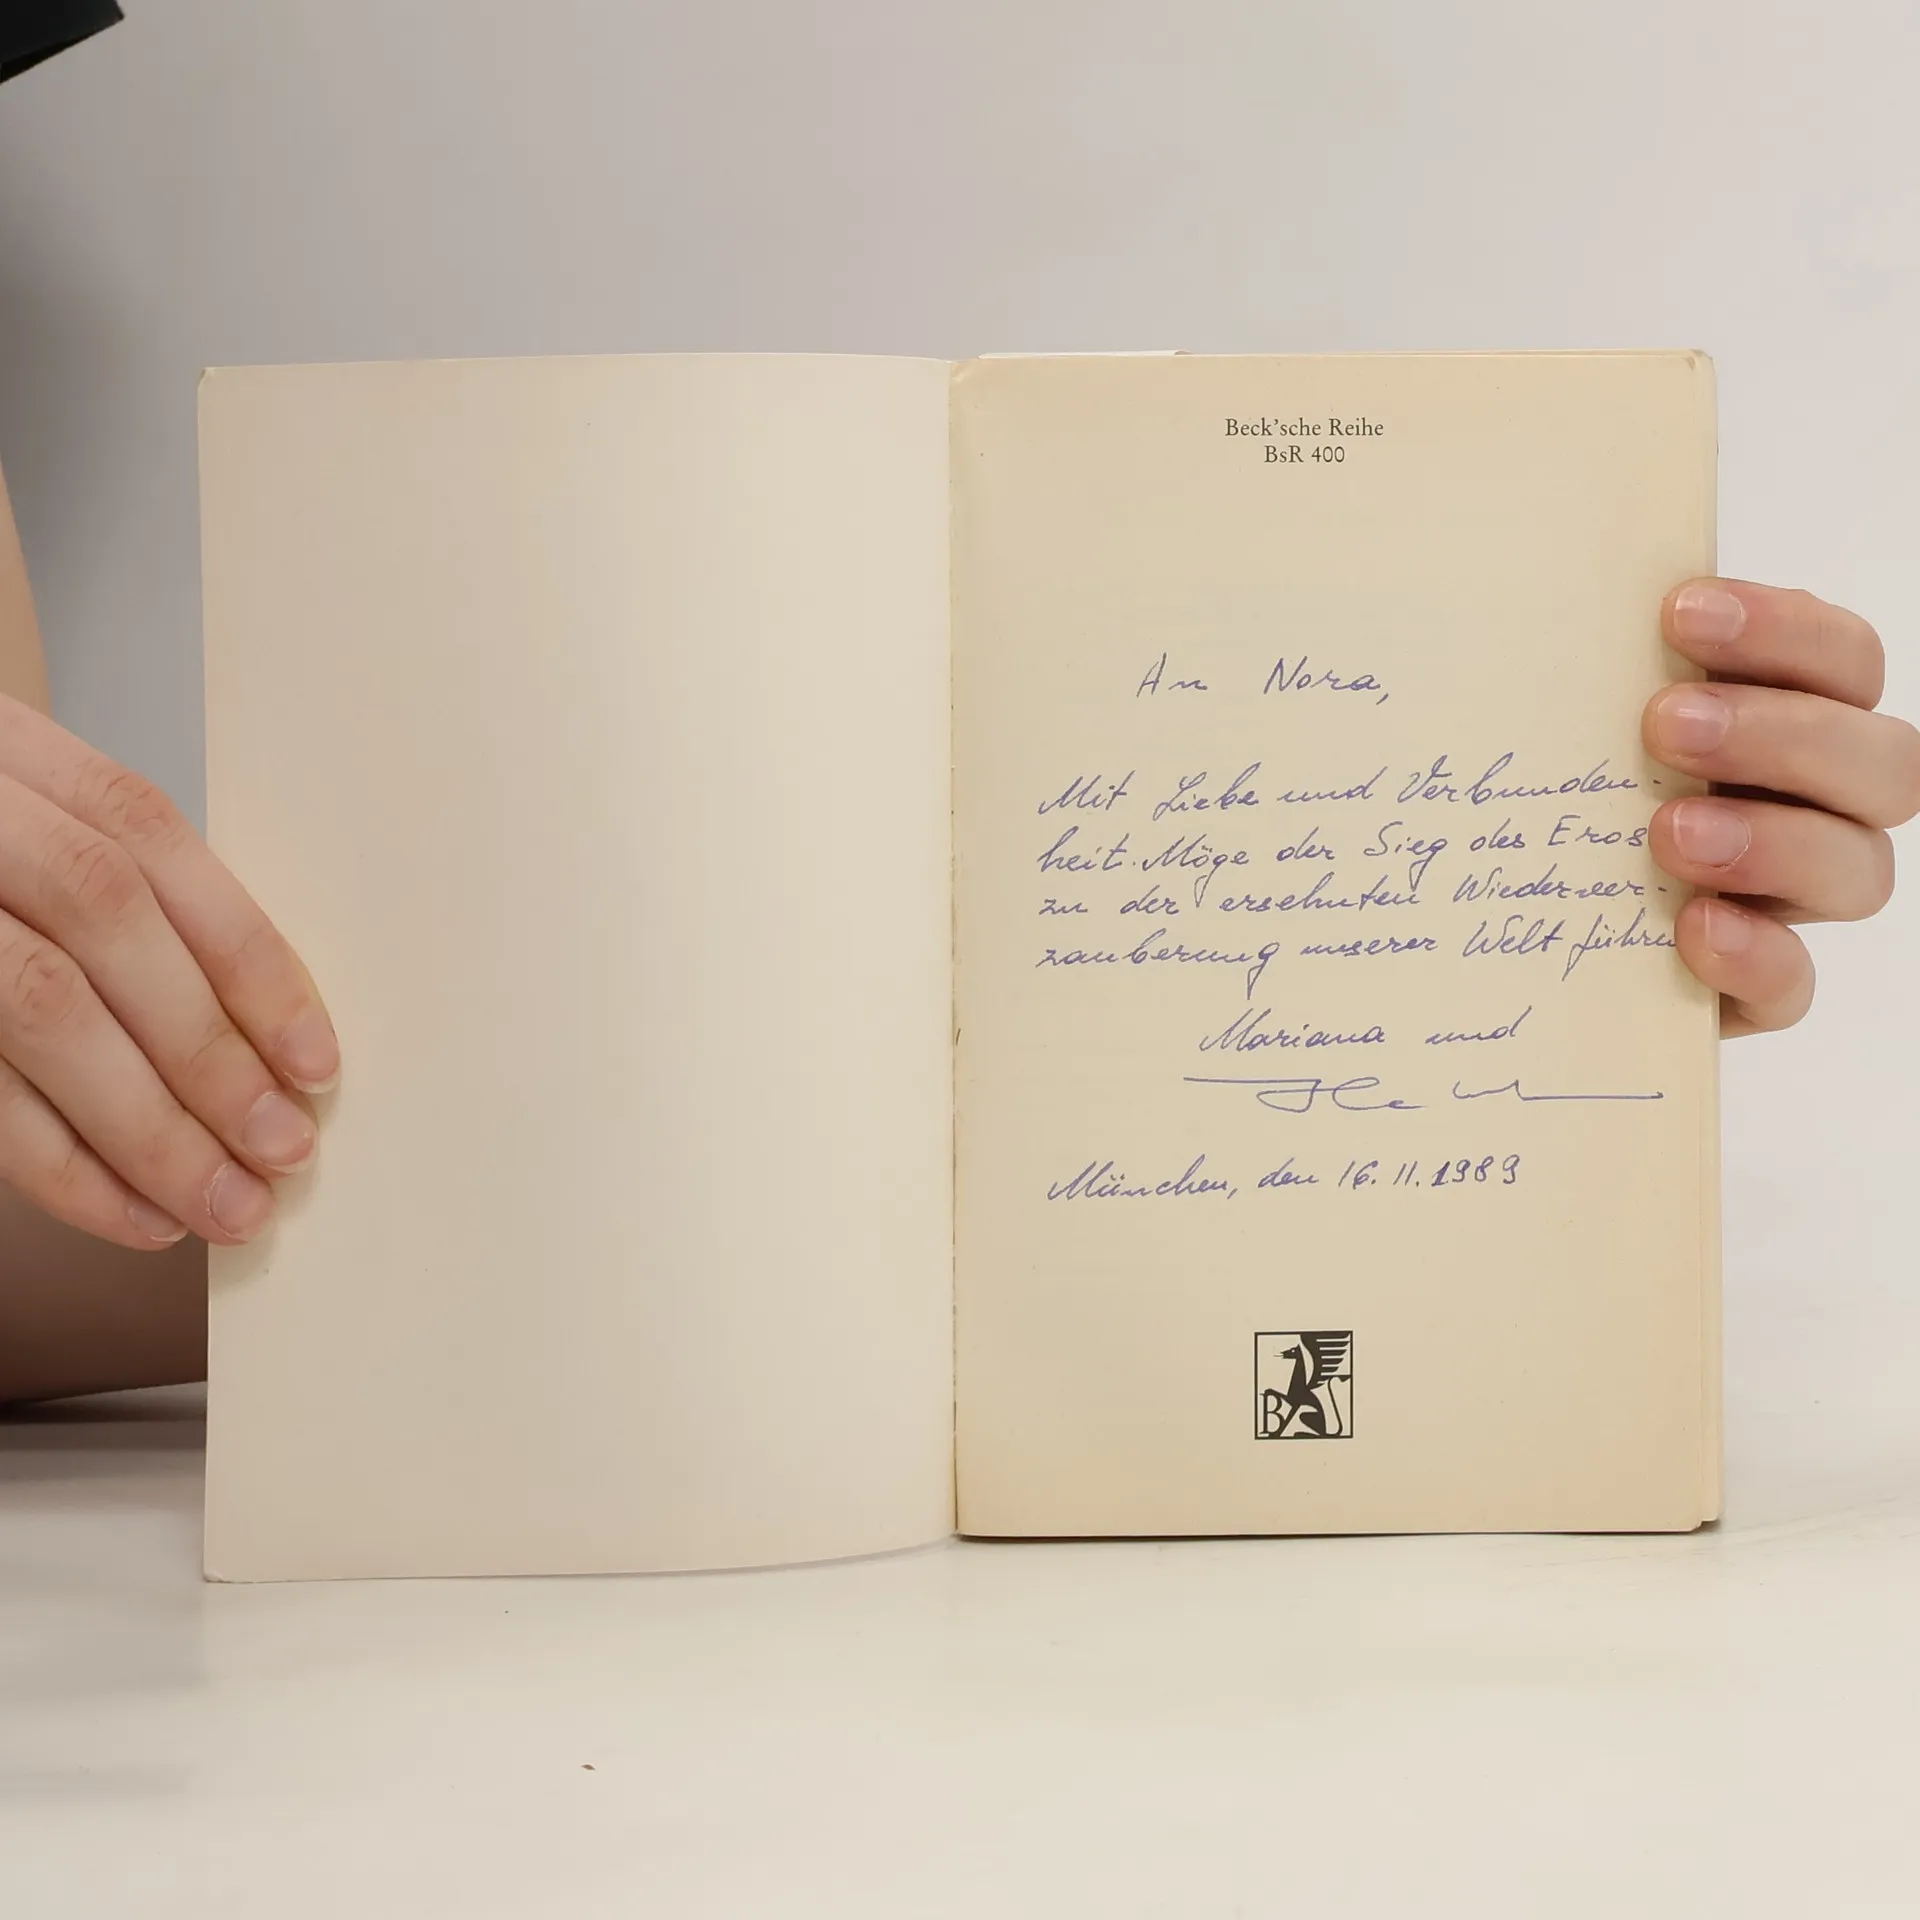 Beck'sche Reihe
BsR 400
An Nora,
Mit Liebe und Verbunden-
heit. Möge der Sieg des Eros
zu der ersehnten Wiederver-
zauberung unserer Welt führen
Mariana und
München, den 16. 11. 1989
B S